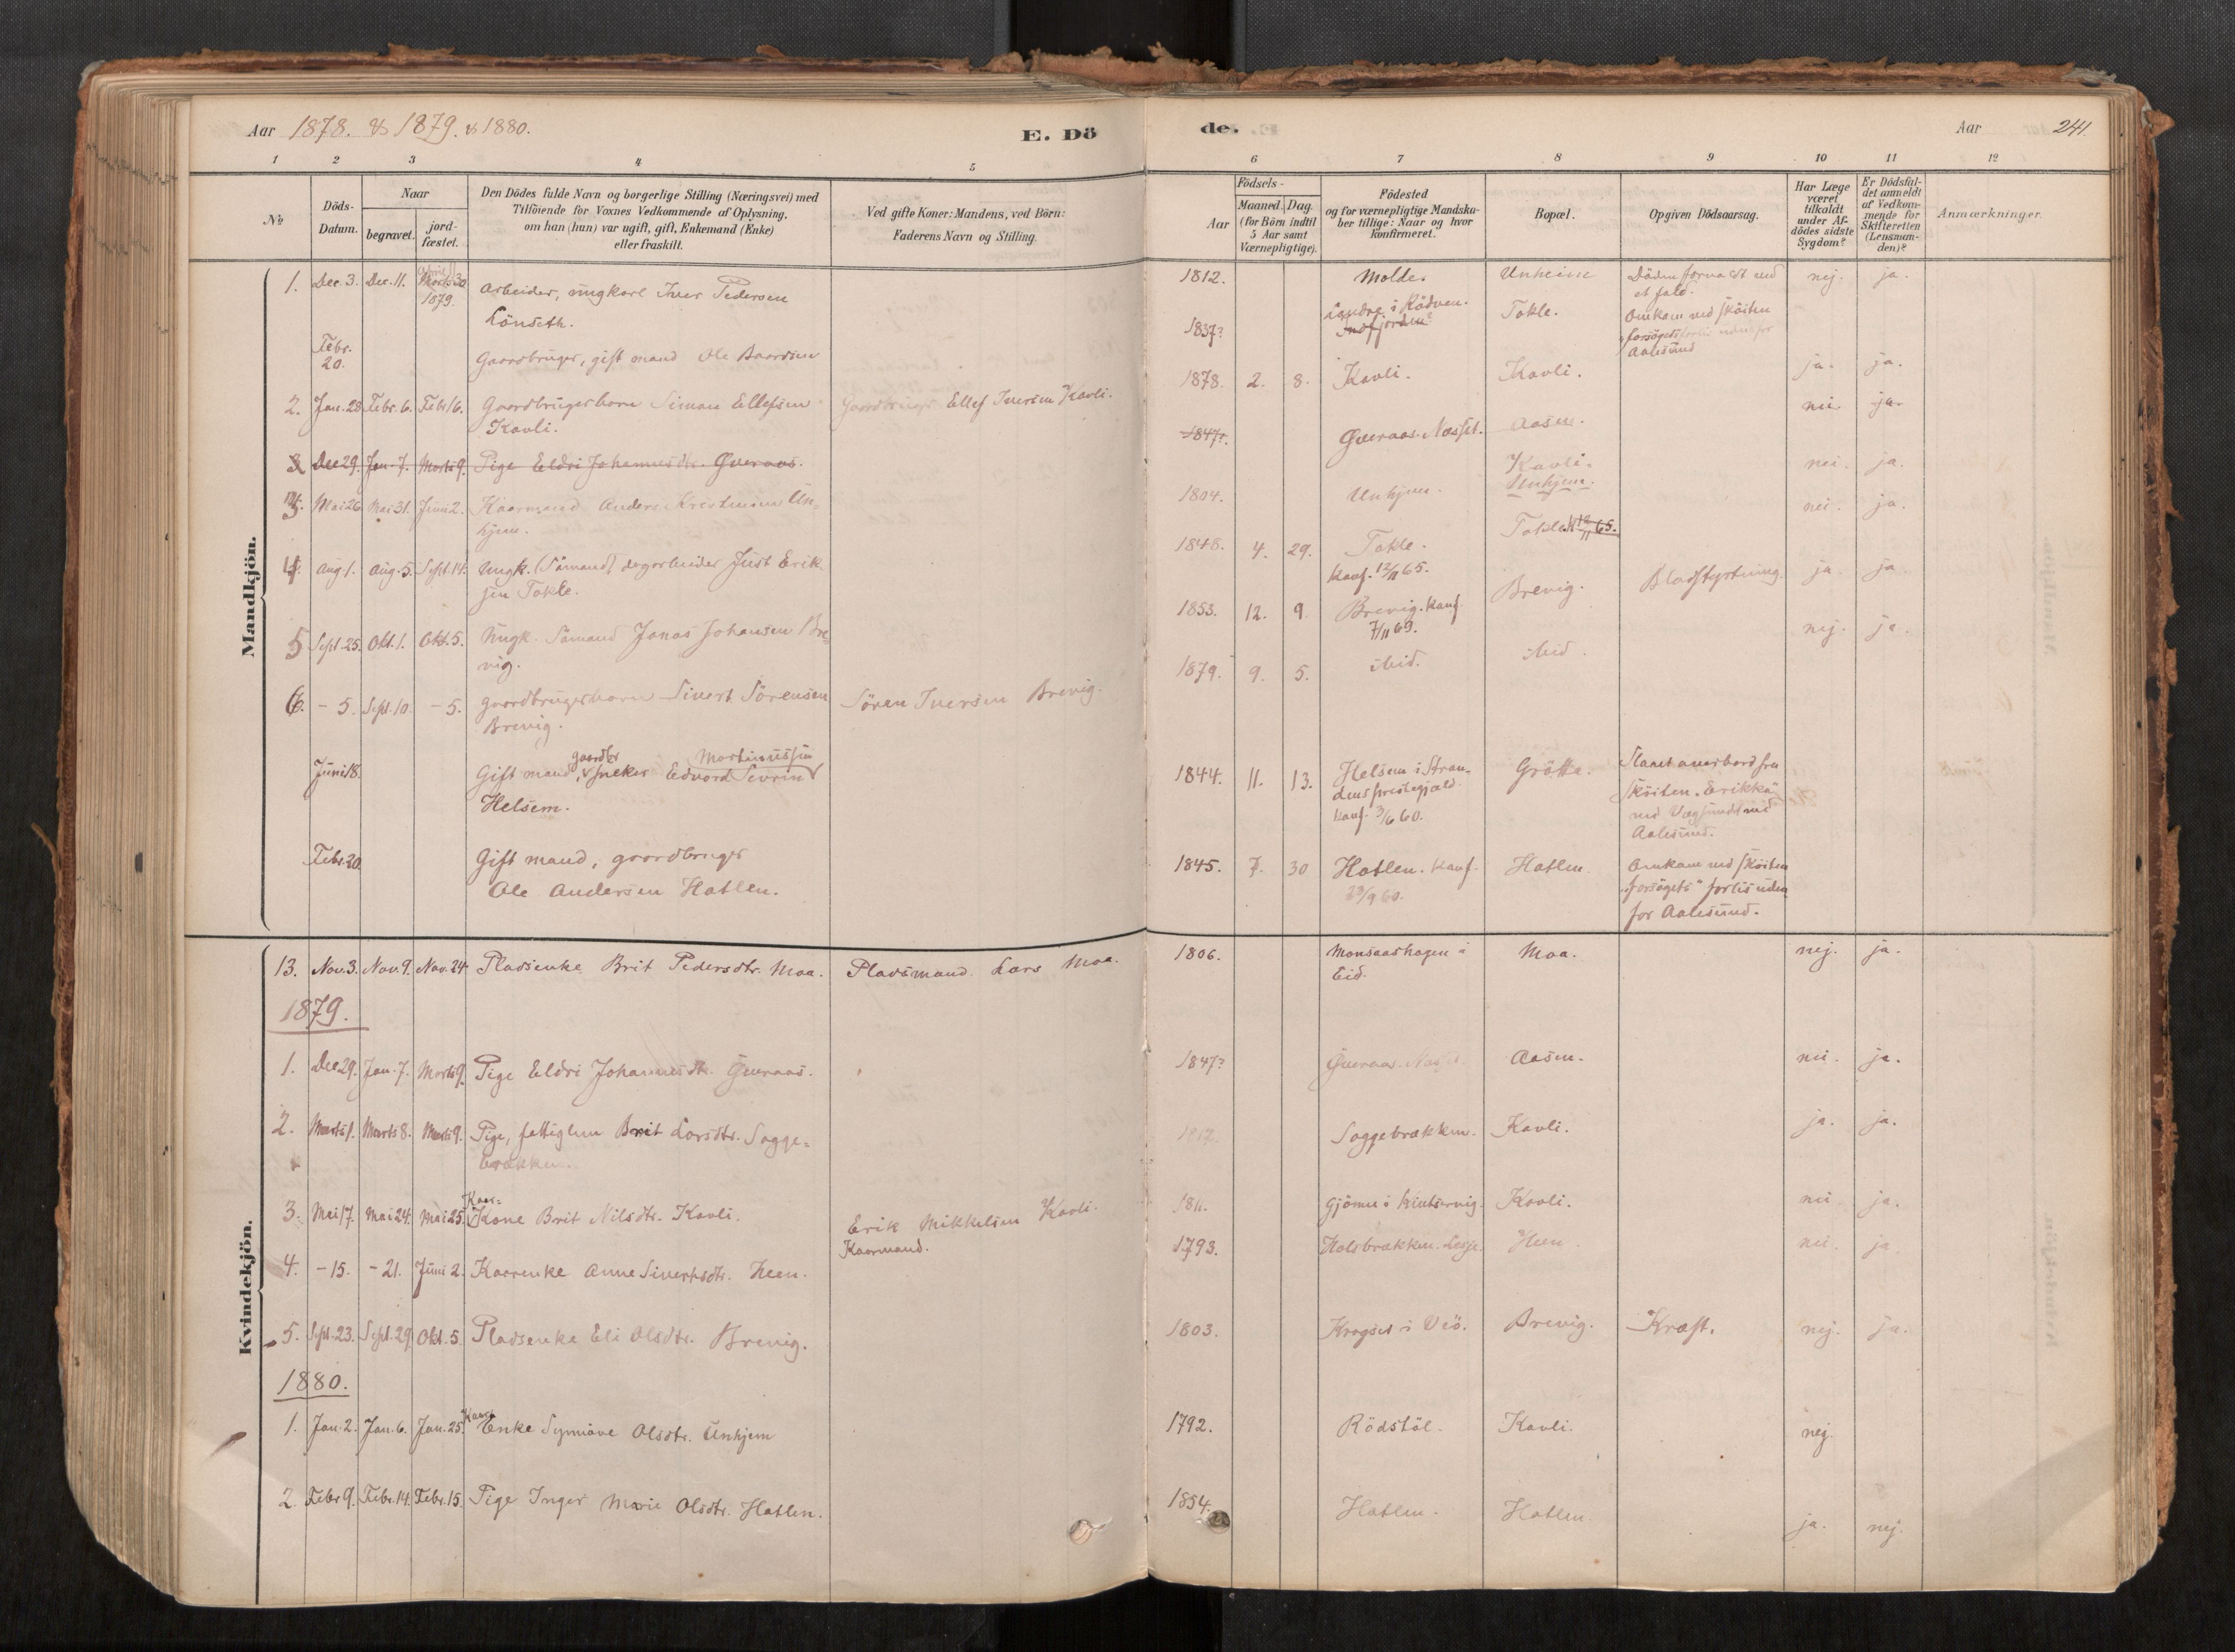 Aar 1878. & 1879. & 1880.
E. Dö
1 2 3 4 5
№
Döds-
Datum.
Naar
begravet.
jord-
fæstet.
Den Dödes fulde Navn og borgerlige Stilling (Næringsvei) med
Tilföiende for Voxnes Vedkommende af Oplysning,
om han (hun) var ugift, gift, Enkemand (Enke)
eller fraskilt.
Ved gifte Koner: Mandens, ved Börn:
Faderens Navn og Stilling.
Mandkjön.
1. Dec. 3. Dec. 11. Marts 30 1879. Arbeider, ungkarl Iver Pedersen
Lönseth.
Febr. 20. Gaardbruger, gift mand Ole Baardsen
2. Jan. 28. Febr. 6. Febr 16. Gaardbrugerbarn Simon Ellefsen Gaardbruger Ellef Iversen Kavli.
Kavli.
Dec 29. Jan. 7. Marts 9. Pige Eldri Johannesdtr. Överaas.
3. Mai 26. Mai 31. Juni 2. Kaarmand Anders Kristensen Un-
hjem.
4. Aug. 1. Aug. 5. Sept. 14. Ungk. (Sömand) dagarbeider Just Erik
sen Tokle.
5 Sept. 25. Okt. 1. Okt. 5. Ungk. Sömand Jonas Johansen Bre-
vig.
6. - 5. Sept. 10. - 5. Gaardbrugerbarn Sivert Sörensen Sören Iversen Brevig.
Brevig.
Juni 18. Gift mand, gaardbr snekker Edvard Severin Martinussen
Helsem.
Febr. 20. Gift mand, gaardbruger
Ole Andersen Hatlen.
Kvindekjön.
13. Nov. 3. Nov. 9. Nov. 24. Pladsenke Brit Pedersdtr. Moa. Pladsmand Lars Moa.
1879.
1. Dec 29. Jan. 7. Marts 9. Pige Eldri Johannesdtr. Överaas.
2. Marts 1. Marts 8. Marts 9. Pige, fattiglem Brit Larsdtr. Sogge-
brækken.
3. Mai 17. Mai 24. Mai 25. Kaar-
Kone Brit Nilsdtr. Kavli. Erik Mikkelsen Kavli.
Kaarmand.
4. - 15. - 21. Juni 2. Kaarenke Anne Sivertsdtr. Heen.
5. Sept. 23. Sept. 29. Okt. 5. Pladsenke Eli Olsdtr. Brevig.
1880.
1. Jan. 2. Jan. 6. Jan. 25. Kaar-
Enke Synnöve Olsdtr. Unhjem
2. Febr 9. Febr. 14. Febr. 15. Pige Inger Marie Olsdtr. Hatlen.
de.
Aar 241.
6 7 8 9 10 11 12
Födsels-
Aar
Maaned. Dag.
(for Börn indtil
5 Aar samt
Værnepligtige).
Födested
og for værnepligtige Mandska-
ber tillige: Naar og hvor
konfirmeret.
Bopæl.
Opgiven Dödsaarsag.
Har Læge
været
tilkaldt
under Af-
dödes sidste
Sygdom?
Er Dödsfal-
det anmeldt
af Vedkom-
mende for
Skifteretten
(Lensman-
den)?
Anmærkninger.
1812. Molde. Döden foraarsaget ved nej. ja.
et fald.
1837? i Rödven. Tokle. Omkom med sköiten
forsöget forlis udenfor
Aalesund
1878. 2. 8. Kavli. Kavli. ja. ja.
1847?. Överaas. Nesset. Aasen. nei ja.
1804. Unhjem. Kavli. nei. ja.
Unhjem.
1848. 4. 29. Tokle. Tokle. 12/11 65. nei. ja.
Konf. 12/11 65.
1853. 12. 9. Brevig. Konf. Brevig. Blodstyrtning. ja. ja.
7/11 69.
1879. 9. 5. ibid. ibid. nej. ja.
1844. 11. 13. Helsem i Stran- Grötta. Slaaet overbord fra
dens prestegjæld. sköiten "Erikka"
Konf. 3/6 60. ved Vegsund ved
Aalesund.
1845. 7. 30 Hatlen. Konf. Hatlen. Omkom med sköiten
23/9 60. "forsögets" forlis uden
for Aalesund.
1806. Monsaashagen i Moa. nej. ja.
Eid.
1847? Överaas. Nesset. Aasen. nei. ja.
1817. Soggebrækken. Kavli. ja. ja.
1811. Gjönnes i Kinservig. Kavli. nei ja.
1793. Holsbrækken. Lesje. Heen. nei. ja
1803. Kragset i Veö. Brevig. Kræft. nej. ja.
1792. Rödstöl. Kavli. nej.
1854. Hatlen. Hatlen. ja. nej.